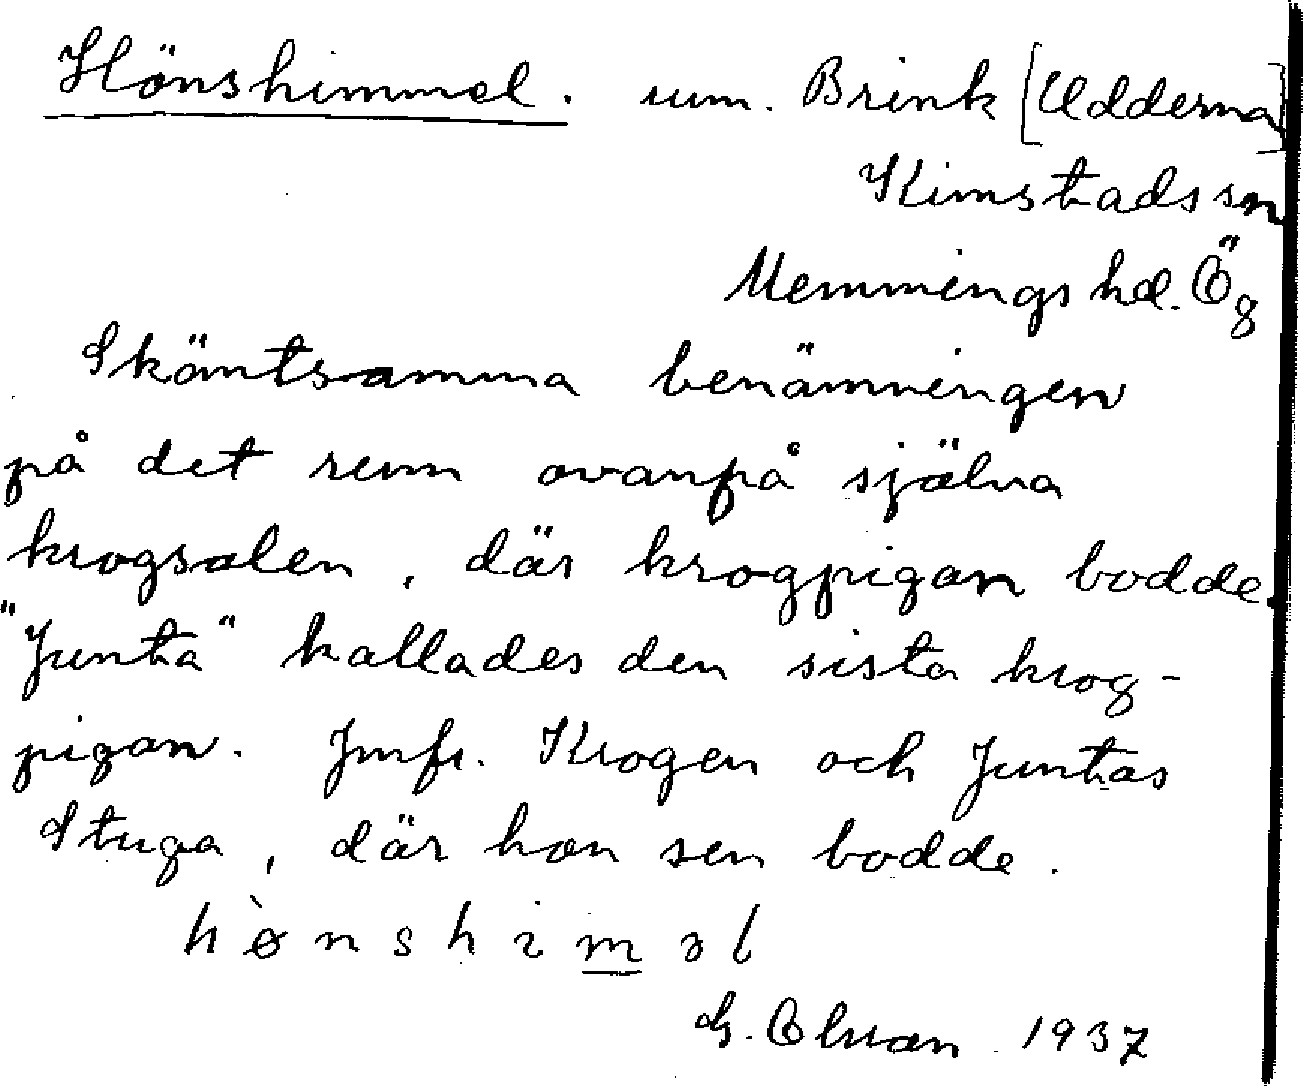 Hönshimmel. rum. Brink [Udderma]
Kimstads sn
Memmings hd. Ög
Skämtsamma benämningen
på det rum ovanpå själva
krogsalen, där krogpigan bodde.
"Junta" kallades den sista krog-
pigan. Jmfr. Krogen och Juntas
Stuga, där hon sen bodde.
hø̀nshiməl
G. 1937